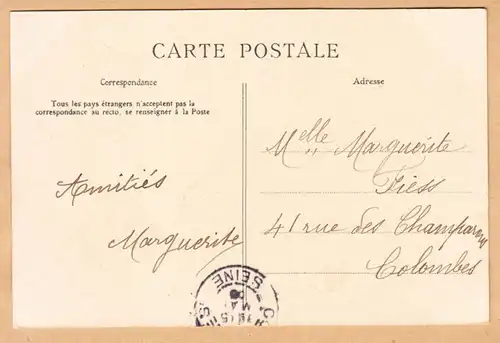 CARTE POSTALE
Correspondance
Adresse
Tous les pays étrangers n'acceptent pas la
correspondance au recto, se renseigner à la Poste
Amitiés
Marguerite
Melle Marguerite
Fiess
41 rue des Champarons
Colombes
SEINE